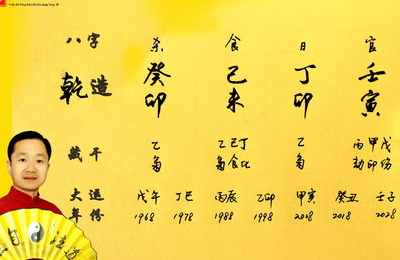 八字 杀 食 日 官
乾造 癸 己 丁 壬
卯 未 卯 寅
藏干 乙 乙己丁 乙 丙甲戊
枭 枭食比 枭 劫印伤
大运 戊午 丁巳 丙辰 乙卯 甲寅 癸丑 壬子
年份 1968 1978 1988 1998 2008 2018 2028